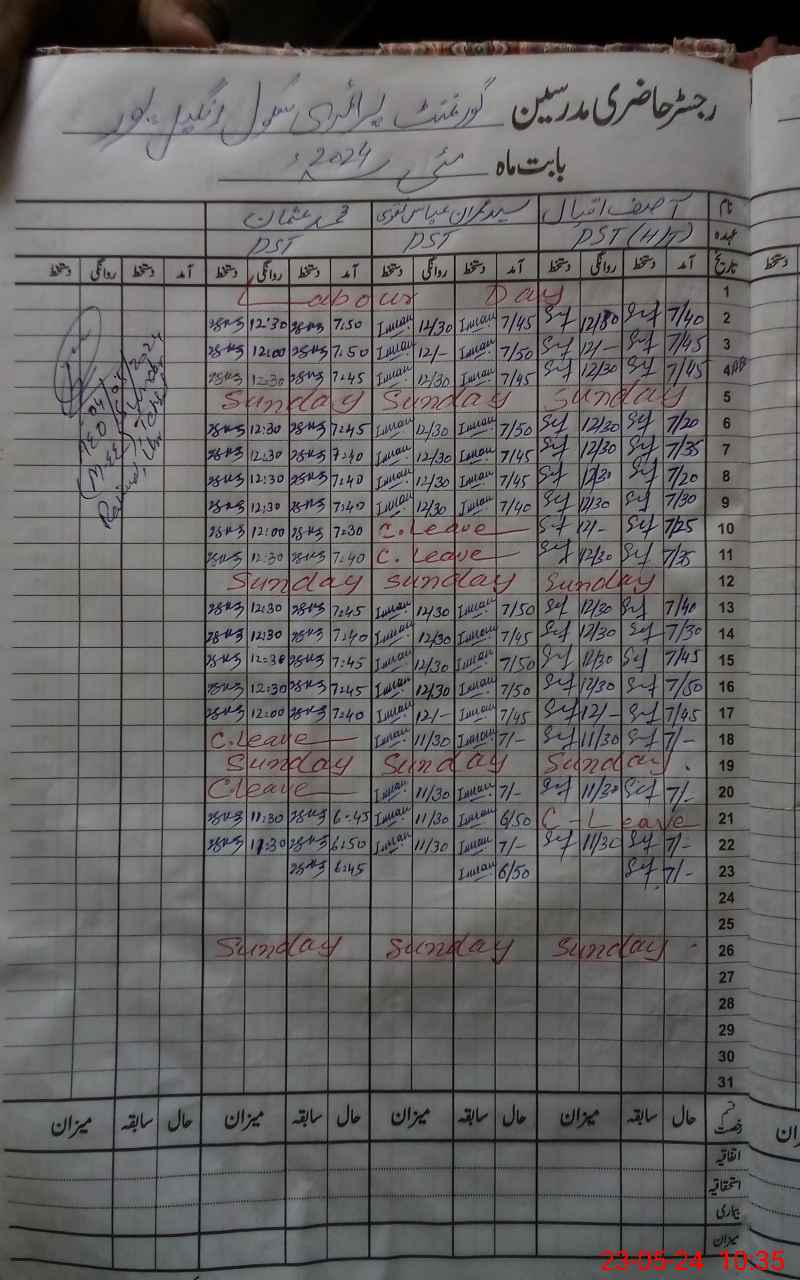 رجسٹر حاضری مدرسین گورنمنٹ پرائمری سکول رنگیل پور
بابت ماہ مئی 2024ء
نام آصف اقبال سید عمران عباس نقوی محمد عثمان
عہدہ PST (H/T) PST PST
تاریخ آمد دستخط روانگی دستخط آمد دستخط روانگی دستخط آمد دستخط روانگی دستخط آمد دستخط روانگی دستخط
1 Labour Day
2 7/40 12/30 7/45 Imran 12/30 Imran 7:50 12:30
3 7/45 12/- 7/50 Imran 12/- Imran 7:50 12:00
4 7/45 12/30 7/45 Imran 12/30 Imran 7:45 12:30
5 Sunday Sunday Sunday
6 7/20 12/30 7/50 Imran 12/30 Imran 7:45 12:30
7 7/35 12/30 7/45 Imran 12/30 Imran 7:40 12:30
8 7/20 12/30 7/45 Imran 12/30 Imran 7:40 12:30
9 7/30 12/30 7/40 Imran 12/30 Imran 7:40 12:30
10 7/25 12/- C.Leave 7:30 12:00
11 7/35 12/30 C.Leave 7:40 12:30
12 Sunday Sunday Sunday
13 7/40 12/30 7/50 Imran 12/30 Imran 7:45 12:30
14 7/30 12/30 7/45 Imran 12/30 Imran 7:40 12:30
15 7/45 12/30 7/50 Imran 12/30 Imran 7:45 12:30
16 7/50 12/30 7/50 Imran 12/30 Imran 7:45 12:30
17 7/45 12/- 7/45 Imran 12/- Imran 7:40 12:00
18 7/- 11/30 7/- Imran 11/30 Imran C.Leave
19 Sunday Sunday Sunday
20 7/- 11/30 7/- Imran 11/30 Imran C.Leave
21 C-Leave 6/50 Imran 11/30 Imran 6:45 11:30
22 7/- 11/30 7/- Imran 11/30 Imran 6:50 11:30
23 7/- 6/50 Imran 6:45
24
25
26 Sunday Sunday Sunday
27
28
29
30
31
قسم رخصت حال سابقہ میزان حال سابقہ میزان حال سابقہ میزان حال سابقہ میزان
اتفاقیہ
استحقاقیہ
بیماری
میزان
AEO
(M-EE)
23-05-24 10:35